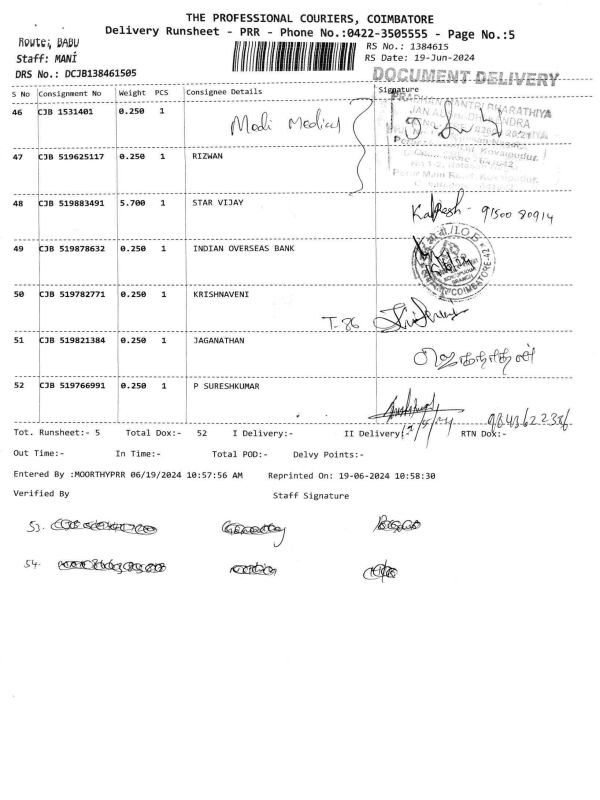 THE PROFESSIONAL COURIERS, COIMBATORE
Delivery Runsheet - PRR - Phone No.:0422-3505555 - Page No.:5
Route; BABU
RS No.: 1384615
Staff: MANI
RS Date: 19-Jun-2024
DRS No.: DCJB138461505
DOCUMENT DELIVERY
S No Consignment No Weight PCS Consignee Details Signature
46 CJB 1531401 0.250 1 Modi Medical
47 CJB 519625117 0.250 1 RIZWAN
48 CJB 519883491 5.700 1 STAR VIJAY
91500 80914
49 CJB 519878632 0.250 1 INDIAN OVERSEAS BANK
50 CJB 519782771 0.250 1 KRISHNAVENI
T-86
51 CJB 519821384 0.250 1 JAGANATHAN
ஜெகநாதன்
52 CJB 519766991 0.250 1 P SURESHKUMAR
Tot. Runsheet:- 5 Total Dox:- 52 I Delivery:- II Delivery:- RTN Dox:-
Out Time:- In Time:- Total POD:- Delvy Points:-
Entered By :MOORTHYPRR 06/19/2024 10:57:56 AM Reprinted On: 19-06-2024 10:58:30
Verified By Staff Signature
53.
54.